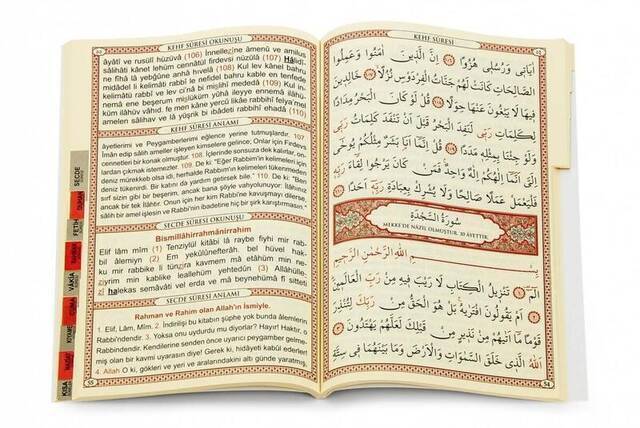 KEHF SÛRESİ OKUNUŞU
âyâtî ve rusulî hüzüvâ (106) İnnellezîne âmenû ve amilus
sâlihâti kânet lehüm cennâtül firdevsi nüzülâ (107) Hâlidî-
ne fîhâ lâ yebğûne anhâ hıvelâ (108) Kul lev kânel bahru
midâdel li kelimâti rabbî le nefidel bahru kable en tenfede
kelimâtü rabbî ve lev ci'nâ bi mislihî mededâ (109) Kul in-
nemâ ene beşerum mislüküm yûhâ ileyye ennemâ ilâhü-
küm ilâhüv vâhid. fe men kâne yercû likâe rabbihî felya'mel
amelen sâlihav ve lâ yüşrik bi ıbâdeti rabbihî ehadâ (110)
KEHF SÛRESİ ANLAMI
âyetlerimi ve Peygamberlerimi eğlence yerine tutmuşlardır. 107
İman edip sâlih ameller işleyen kimselere gelince; Onlar için Firdevs
cennetleri bir konak olmuştur. 108. İçlerinde sonsuza dek kalırlar, on-
lardan çıkmak istemezler. 109. De ki: "Eğer Rabbin'in kelimeleri için
deniz mürekkeb olsa idi, herhalde Rabbim'in kelimeleri tükenmeden
deniz tükenirdi. Bir katını da yardım getirsek bile." 110. De ki: "Ben
sırf sizin gibi bir beşerim, ancak bana şöyle vahyolunuyor: İlâhınız
ancak bir tek İlâhdır. Onun için her kim Rabbi'ne kavuşmayı dilerse,
sâlih bir amel işlesin ve Rabbi'nin ibadetine hiç bir şirk karıştırmasın."
SECDE SÛRESİ OKUNUŞU
Bismillâhirrahmânirrahim
Elif lâm mîm (1) Tenzîlül kitâbi lâ raybe fîhi mir rab-
bil âlemîyn (2) Em yekûlûnefterâh. bel hüvel hak-
ku mir rabbike li tünzira kavmem mâ etêhüm min ne-
ziyrim min kablike leallehüm yehtedûn (3) Allâhülle-
zî halekas semâvâti vel erda ve mâ beynehümâ fî sitteti
SECDE SÛRESİ ANLAMI
Rahman ve Rahim olan Allah'ın İsmiyle.
1. Elif, Lâm, Mîm. 2. İndirilişi bu kitabın şüphe yok bunda âlemlerin
Rabbi'ndendir. 3. Yoksa onu uydurdu mu diyorlar? Hayır! Haktır, o
Rabbi'ndendir. Kendilerine senden önce uyarıcı peygamber gelme-
miş olan bir kavmi uyarasın diye! Gerek ki, hidâyeti kabûl ederler!
4. Allah O ki, gökleri ve yeri ve aralarındakini altı günde yaratmış,
SECDE
DUHAN
FETİH
VÂKIA
KIYAME
KISA
KEHF SÛRESİ
اٰيَاتٖي وَرُسُلٖي هُزُوًا ﴿١٠٦﴾ اِنَّ الَّذٖينَ اٰمَنُوا وَعَمِلُوا
الصَّالِحَاتِ كَانَتْ لَهُمْ جَنَّاتُ الْفِرْدَوْسِ نُزُلًا ﴿١٠٧﴾ خَالِدٖينَ
فٖيهَا لَا يَبْغُونَ عَنْهَا حِوَلًا ﴿١٠٨﴾ قُلْ لَوْ كَانَ الْبَحْرُ مِدَادًا
لِكَلِمَاتِ رَبّٖي لَنَفِدَ الْبَحْرُ قَبْلَ اَنْ تَنْفَدَ كَلِمَاتُ رَبّٖي
وَلَوْ جِئْنَا بِمِثْلِهٖ مَدَدًا ﴿١٠٩﴾ قُلْ اِنَّمَا اَنَا بَشَرٌ مِثْلُكُمْ يُوحٰٓى
اِلَيَّ اَنَّمَا اِلٰهُكُمْ اِلٰهٌ وَاحِدٌ فَمَنْ كَانَ يَرْجُوا لِقَاءَ رَبِّهٖ
فَلْيَعْمَلْ عَمَلًا صَالِحًا وَلَا يُشْرِكْ بِعِبَادَةِ رَبِّهٖ اَحَدًا ﴿١١٠﴾
سُورَةُ السَّجْدَةِ
MEKKE'DE NÂZİL OLMUŞTUR. 30 ÂYETTİR.
بِسْمِ اللّٰهِ الرَّحْمٰنِ الرَّحٖيمِ
الٓمٓ ﴿١﴾ تَنْزٖيلُ الْكِتَابِ لَا رَيْبَ فٖيهِ مِنْ رَبِّ الْعَالَمٖينَ ﴿٢﴾
اَمْ يَقُولُونَ افْتَرٰيهُ بَلْ هُوَ الْحَقُّ مِنْ رَبِّكَ لِتُنْذِرَ
قَوْمًا مَا اَتٰيهُمْ مِنْ نَذٖيرٍ مِنْ قَبْلِكَ لَعَلَّهُمْ يَهْتَدُونَ ﴿٣﴾
اَللّٰهُ الَّذٖي خَلَقَ السَّمٰوَاتِ وَالْاَرْضَ وَمَا بَيْنَهُمَا فٖي سِتَّةِ